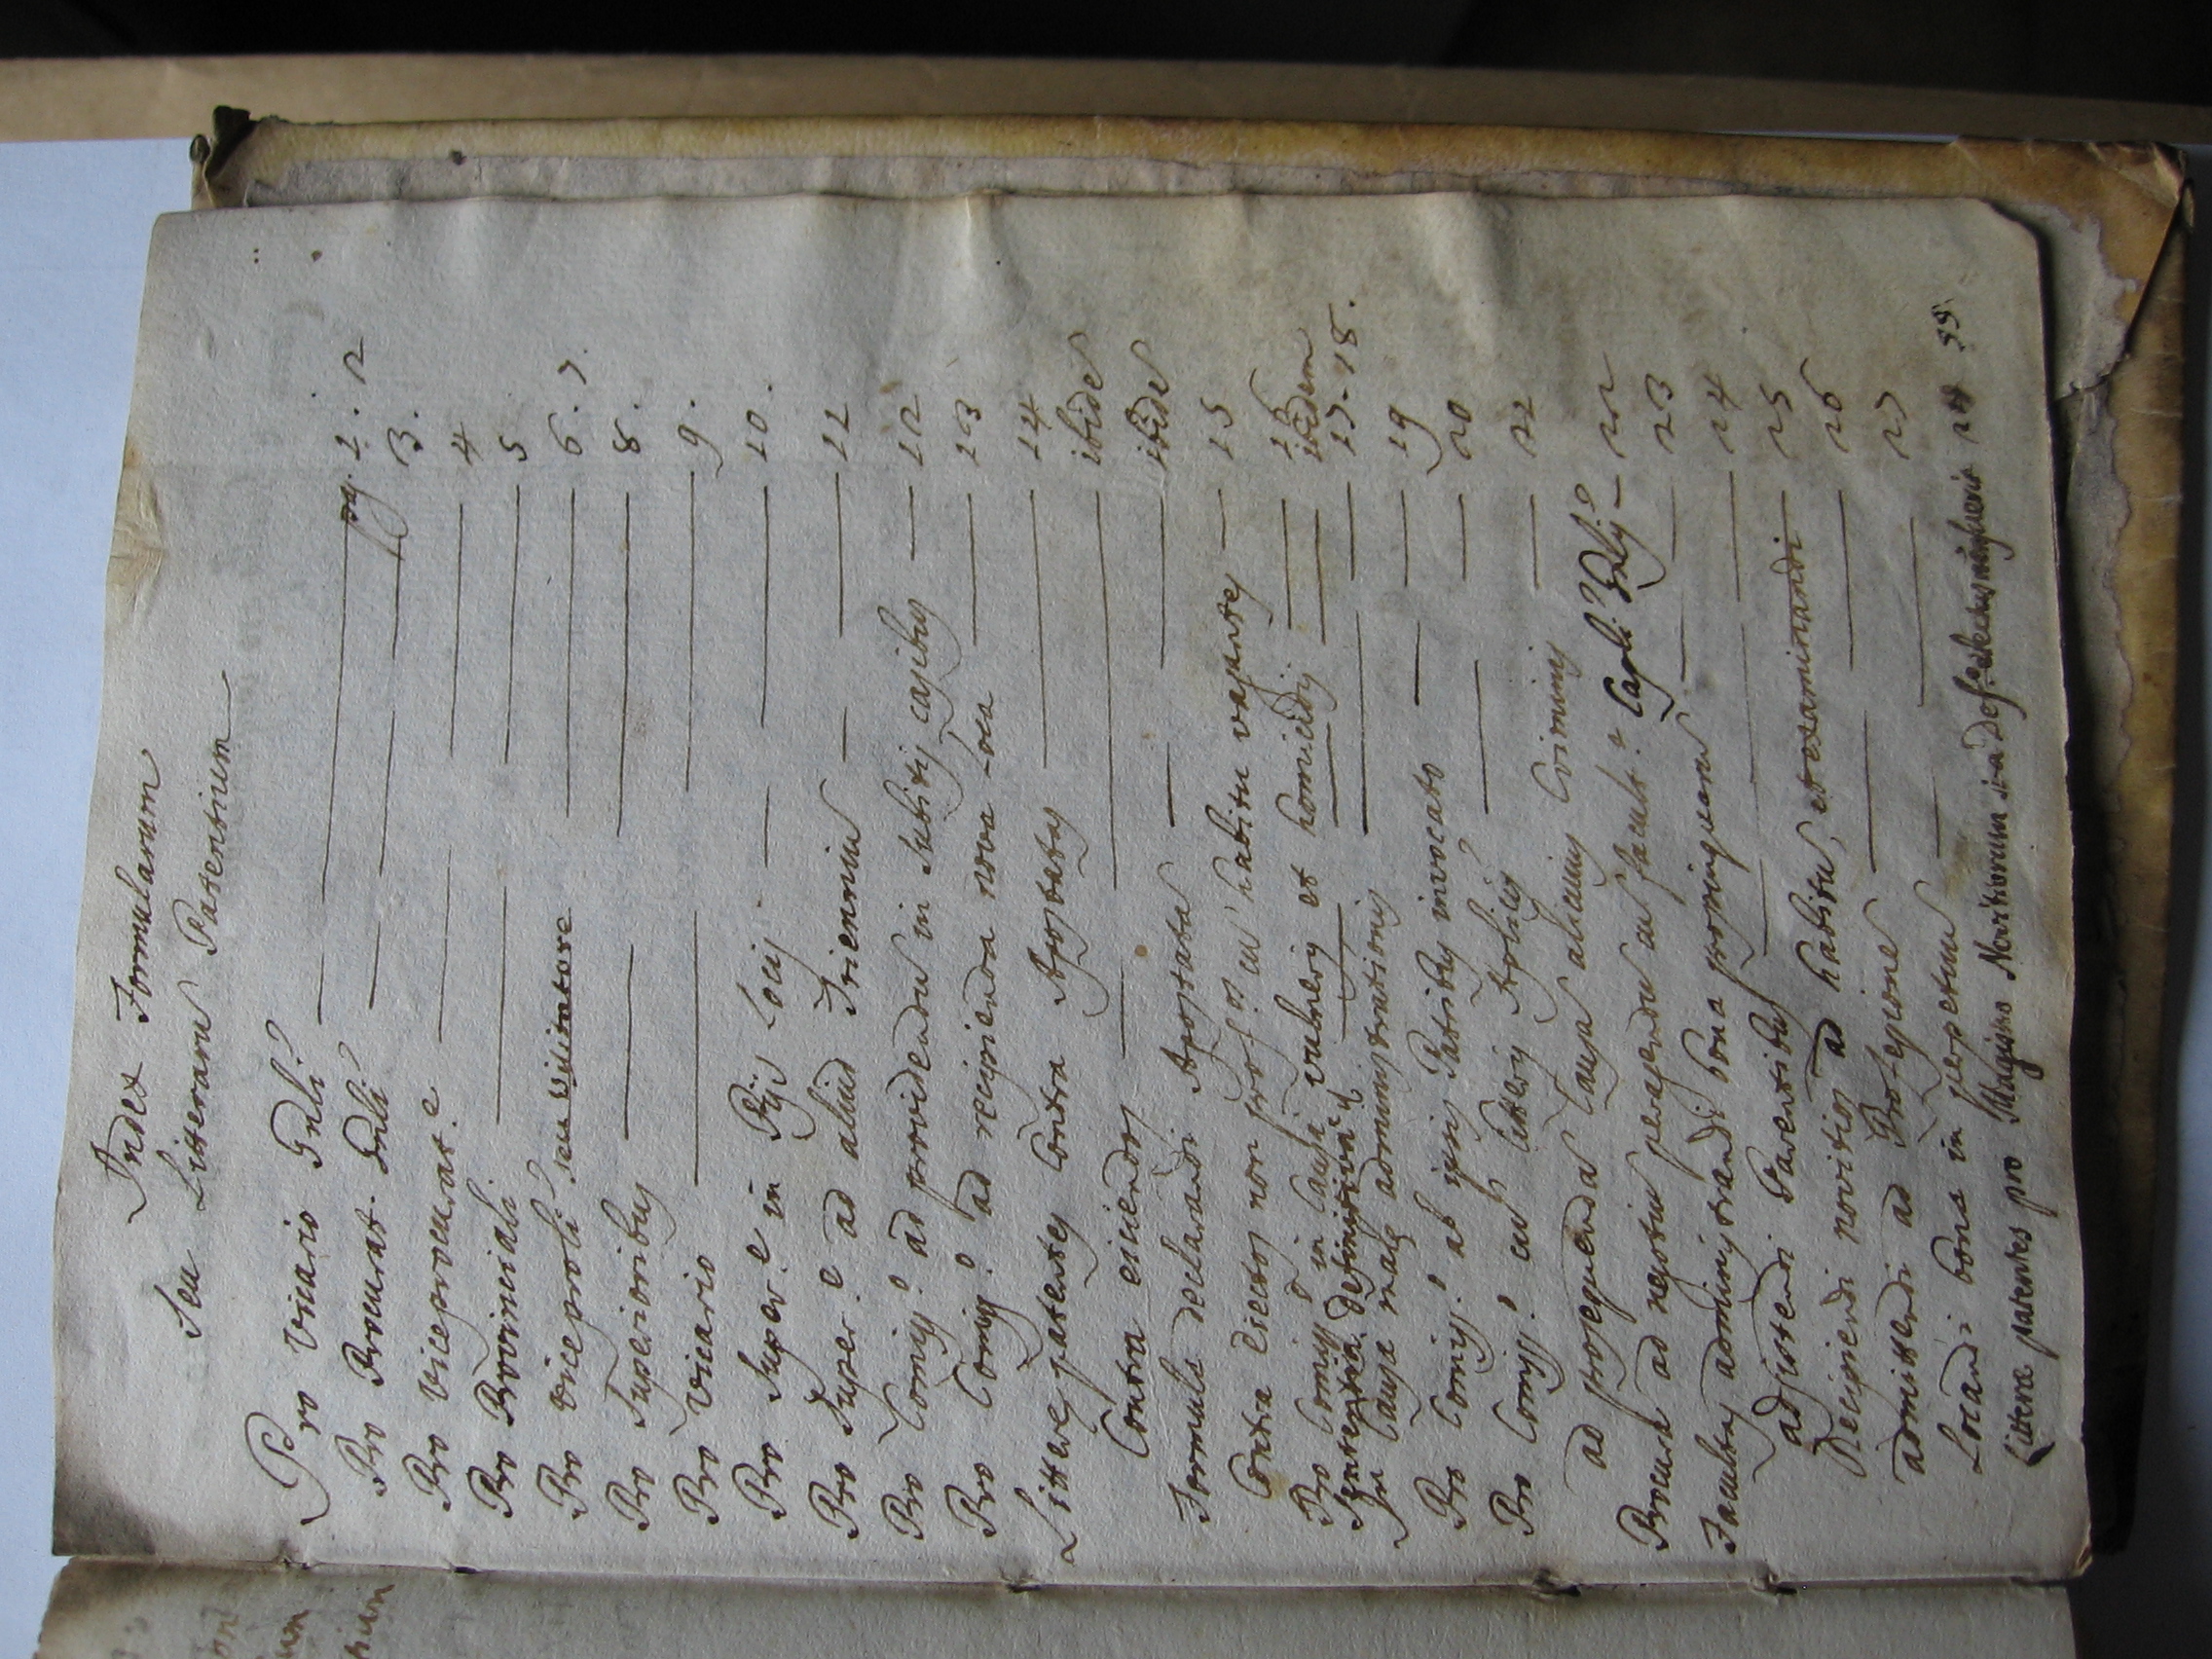 Index Formularum
Seu Litteraru Patentium
Pro Vicario Gnli pag. 1. 2
Pro Procurat. Gnli 3.
Pro Viceprocurat.e 4
Pro Provinciali 5
Pro Viceprovli seu Visitatore 6. 7.
Pro Superioribus 8.
Pro Vicario 9.
Pro Super.e in Pijs Locis 10.
Pro Super.e ad aliud Trienniu 11
Pro Comiss.o ad providendu in subitis casibus 12
Pro Comiss.o ad recipienda nova loca 13
Litterę patentes Contra Apostatas 14
Contra eiiciendos ibide
Formula declarandi Apostata ibide
Contra eiectos non prof.os cu habitu vagantes 15
Pro Comiss.o in Causa vulneris et homicidij 16
Sententia definitiva ibidem
In Causa malę administrationis 17-18.
Pro Comiss.o ab ipsis Patribus invocato 19
Pro Comiss.o cu litteris Aplicis 20
ad prosequenda Causa alicuius Criminis 21
Procura ad negotiu peragendu cu facult.e Capli Gnlis 22
Facultas administrandi bona 23
adsistendi Parentibus 24
Recipiendi novitios ad habitu, et examinandi 25
admittendi ad Professione 26
Locandi bona in perpetuum 27
Litteræ patentes pro Magistro Novitiorum
on
um